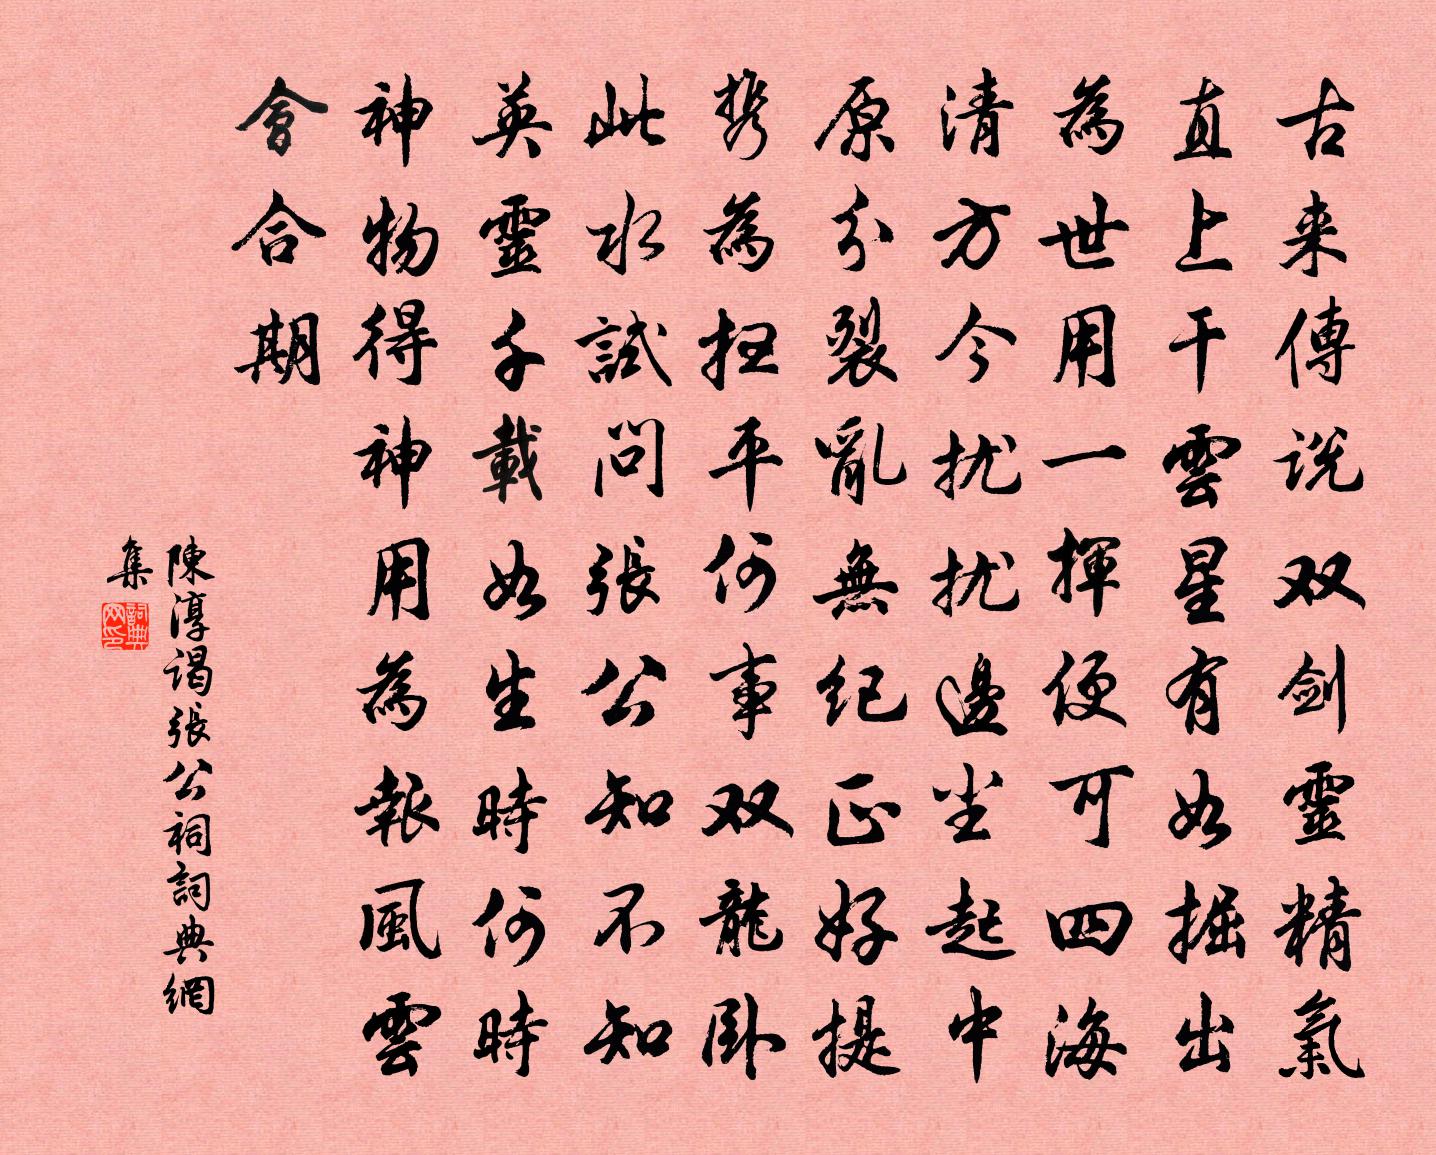 古来傳说双剑靈精氣
直上干雲星有如掘出
為世用一揮便可四海
清方今扰扰邊尘起中
原分裂亂無纪正好提
携為扫平何事双龍卧
此水試问張公知不知
英靈千載如生時何時
神物得神用為報風雲
會合期
陳淳谒張公祠詞典網
集
詞典
网印